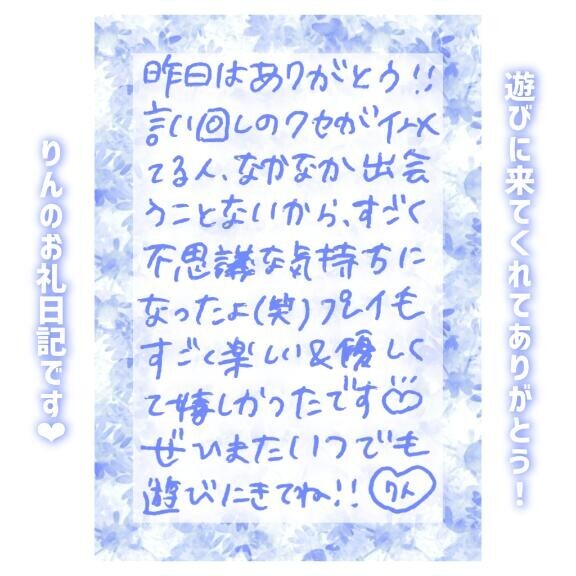 遊びに来てくれてありがとう！
昨日はありがとう!!
言い回しのクセが似
てる人、なかなか出会
うことないから、すごく
不思議な気持ちに
なったよ(笑)プレイも
すごく楽しい&優しく
て嬉しかったです♡
ぜひまたいつでも
遊びにきてね!!りん
りんのお礼日記です❤